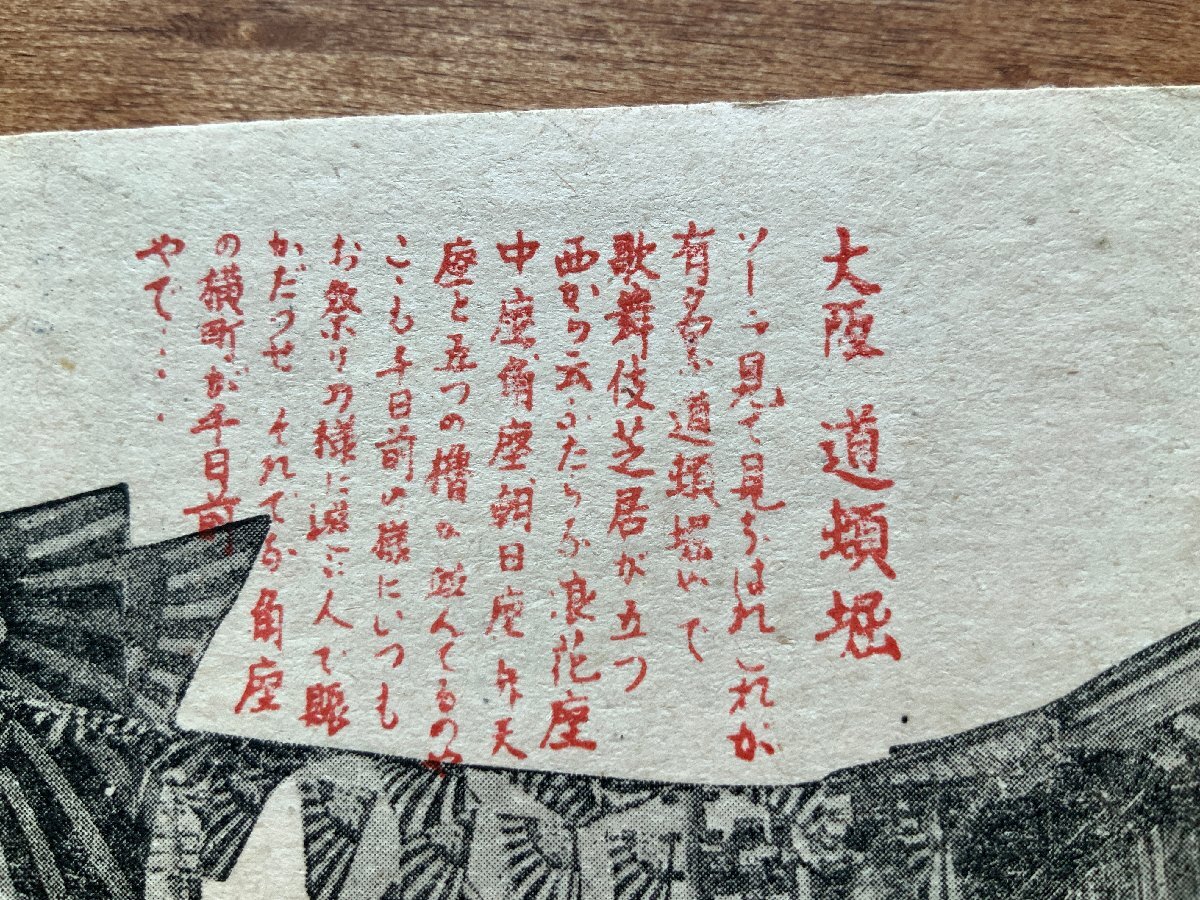 大阪 道頓堀
ソーラ見て見なはれこれが
有名な道頓堀いで
歌舞伎芝居が立つ
西から云ふたらな浪花座
中座、角座、朝日座、弁天
座と五つの櫓が並んでるのや
こゝも千日前の様にいつも
お祭りの様に人で賑
かだつせ それでな角座
の横町が千日前
やで‥‥